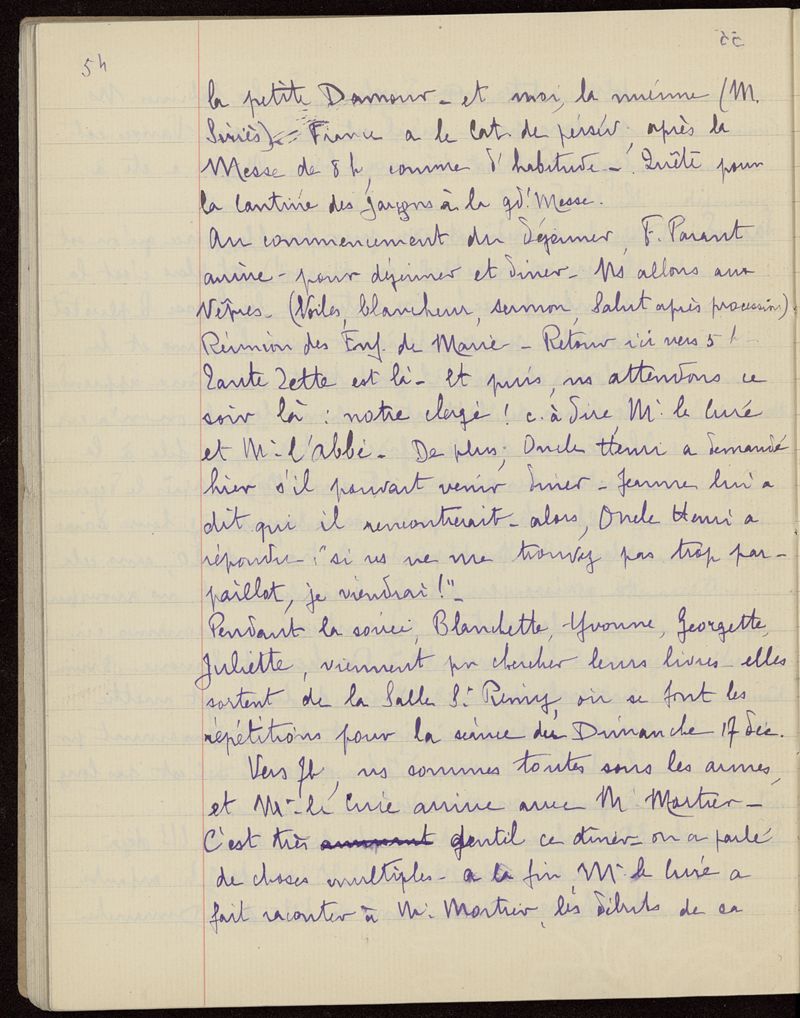 54
55
la petite Damour - et moi, la mienne (M.
Siriès) - France a le Cat. de persév. après la
Messe de 8h, comme d'habitude - Quête pour
la Cantine des garçons à la gd' Messe.
Au commencement du déjeuner, F. Parant
arrive - pour déjeuner et dîner - Ns allons aux
Vêpres - (Voiles, blancheur, sermon, Salut après procession)
Réunion des Enf. de Marie - Retour ici vers 5h -
Tante Zette est là - Et puis, ns attendons ce
soir là : notre clergé ! c. à dire, Mr le Curé
et Mr l'abbé - De plus, Oncle Henri a demandé
hier s'il pouvait venir dîner - Jeanne lui a
dit qui il rencontrerait - alors, Oncle Henri a
répondu : "si vs ne me trouvez pas trop par-
paillot, je viendrai !" -
Pendant la soirée, Blanchette, Yvonne, Georgette,
Juliette, viennent pr chercher leurs livres - elles
sortent de la Salle St Remy, où se font les
répétitions pour la séance du Dimanche 17 déc.
Vers 7h, ns sommes toutes sous les armes,
et Mr le Curé arrive avec Mr Mortier -
C'est très gentil ce dîner - on a parlé
de choses multiples - a la fin Mr le Curé a
fait raconter à Mr Mortier, les débuts de sa